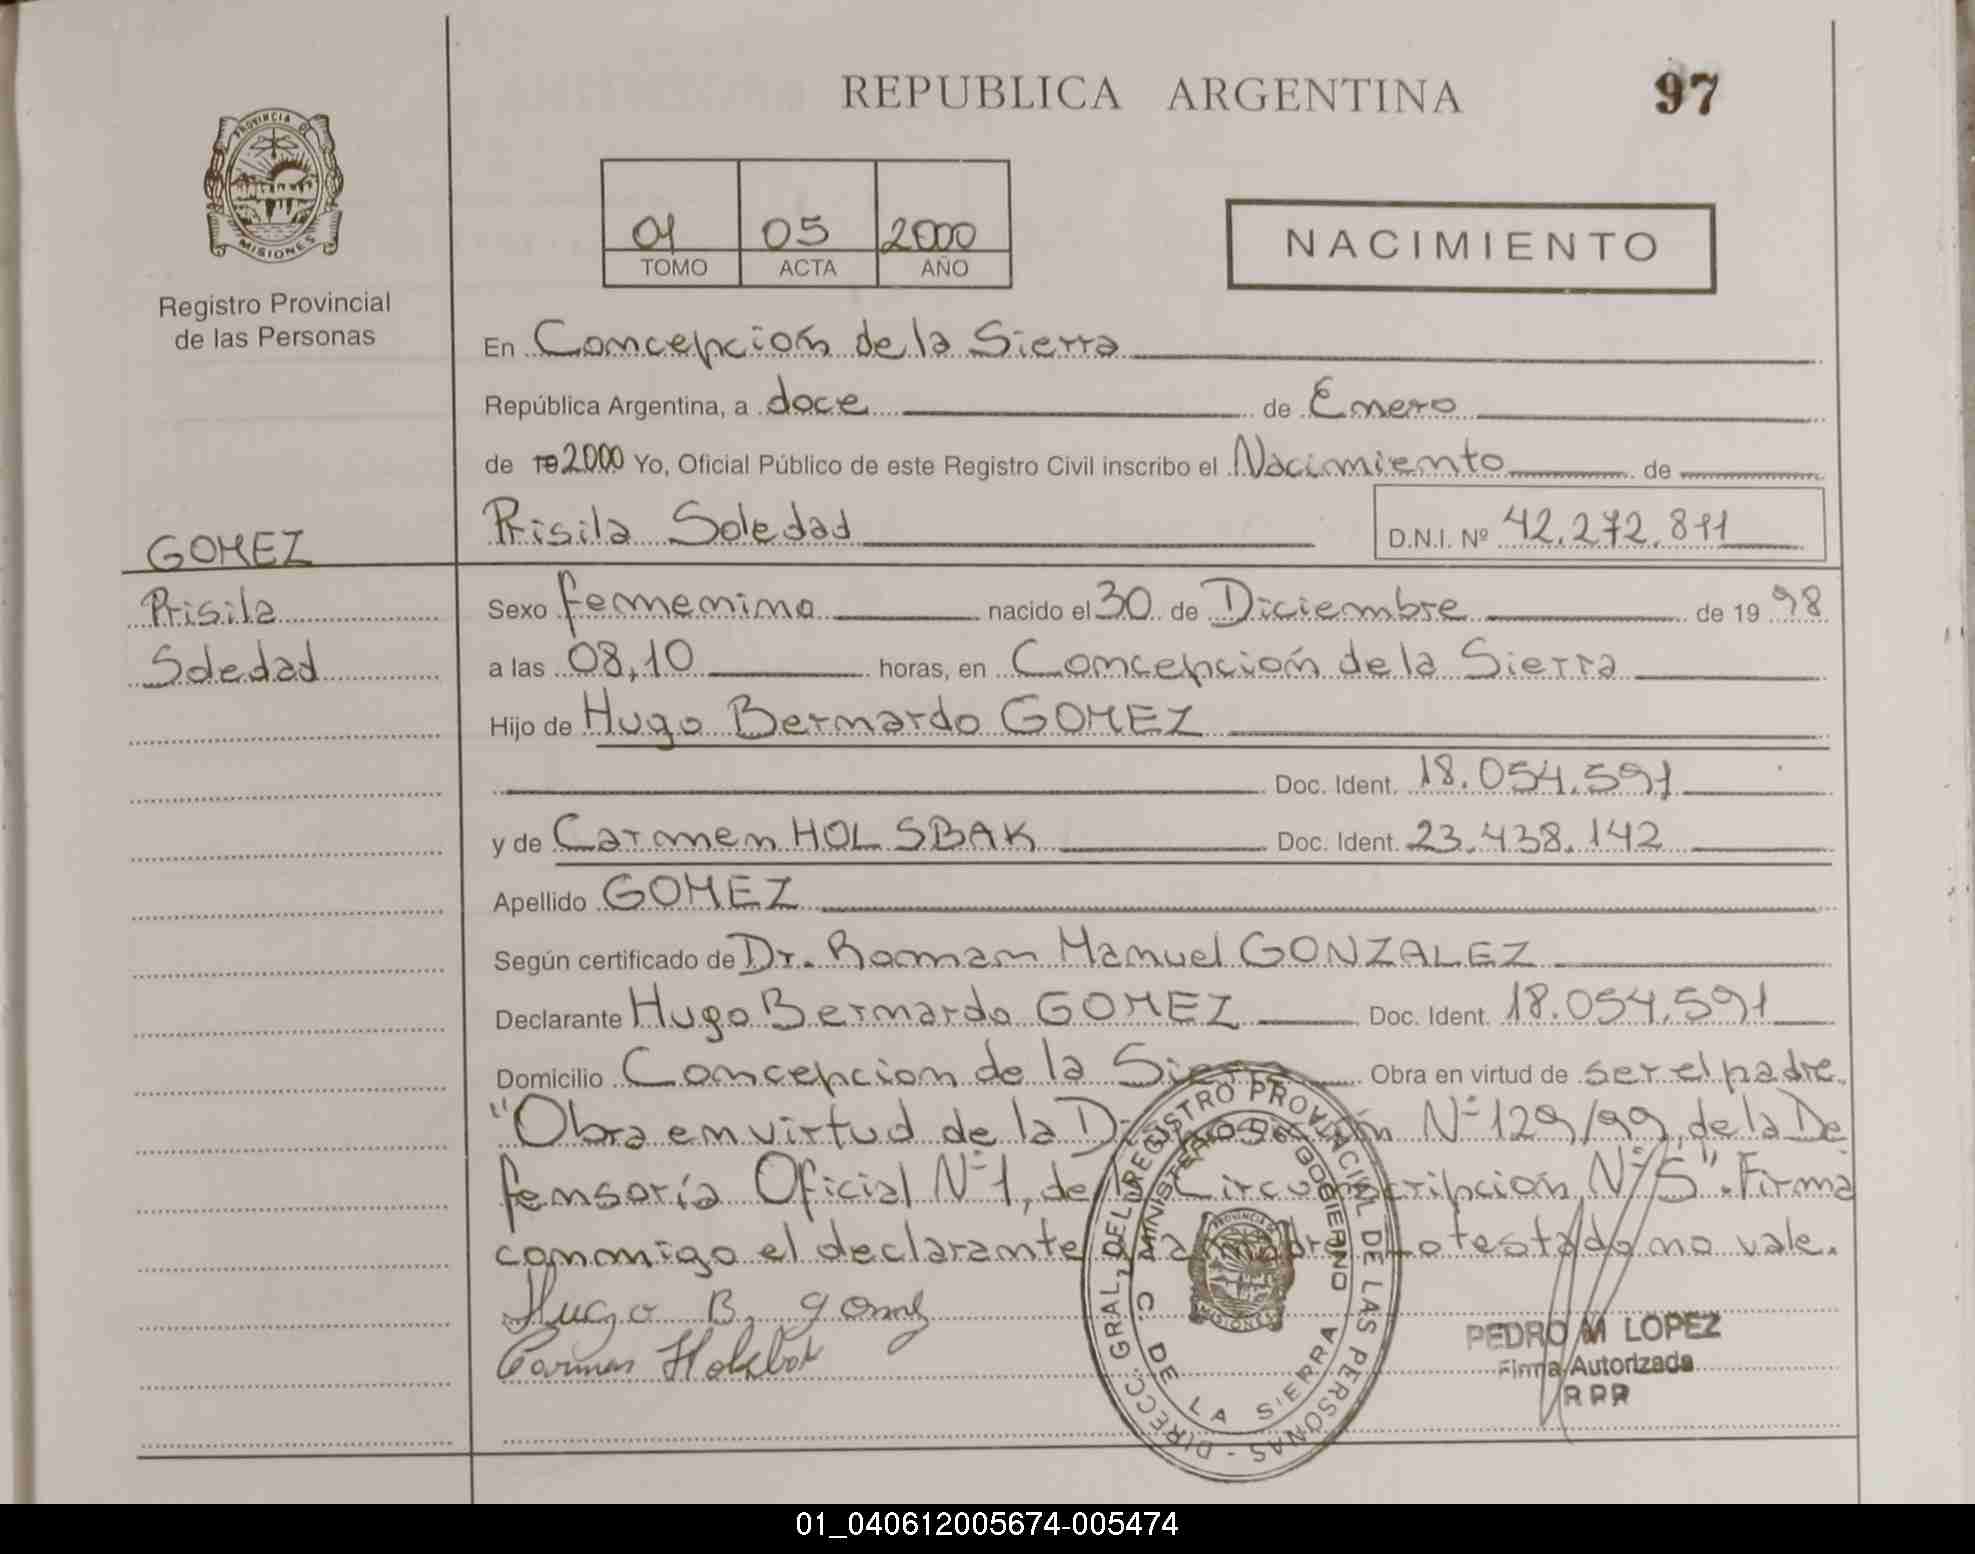 REPUBLICA ARGENTINA
97
PROVINCIA DE
MISIONES
Registro Provincial
de las Personas
01 05 2000
TOMO ACTA AÑO
NACIMIENTO
En Concepción de la Sierra
República Argentina, a doce de Enero
de 19 2000 Yo, Oficial Público de este Registro Civil inscribo el Nacimiento de
Prisila Soledad D.N.I. Nº 42.272.811
GOMEZ
Prisila
Soledad
Sexo femenino nacido el 30 de Diciembre de 19 98
a las 08,10 horas, en Concepción de la Sierra
Hijo de Hugo Bernardo GOMEZ
Doc. Ident. 18.054.591
y de Carmen HOLSBAK Doc. Ident. 23.438.142
Apellido GOMEZ
Según certificado de Dr. Roman Manuel GONZALEZ
Declarante Hugo Bernardo GOMEZ Doc. Ident. 18.054.591
Domicilio Concepcion de la Sierra Obra en virtud de ser el padre.
"Obra en virtud de la Disposición Nº 129/99, de la De
fensoría Oficial Nº 1, de la Circunscripción Nº 5". Firma
conmigo el declarante y la madre. Lo testado no vale.
Hugo B. Gomez
Carmen Holsbak
DIRECC. GRAL. DEL REGISTRO PROVINCIAL DE LAS PERSONAS -
MINISTERIO DE GOBIERNO
C. DE LA SIERRA
PROVINCIA DE
MISIONES
PEDRO M LOPEZ
Firma Autorizada
RPP
01_040612005674-005474